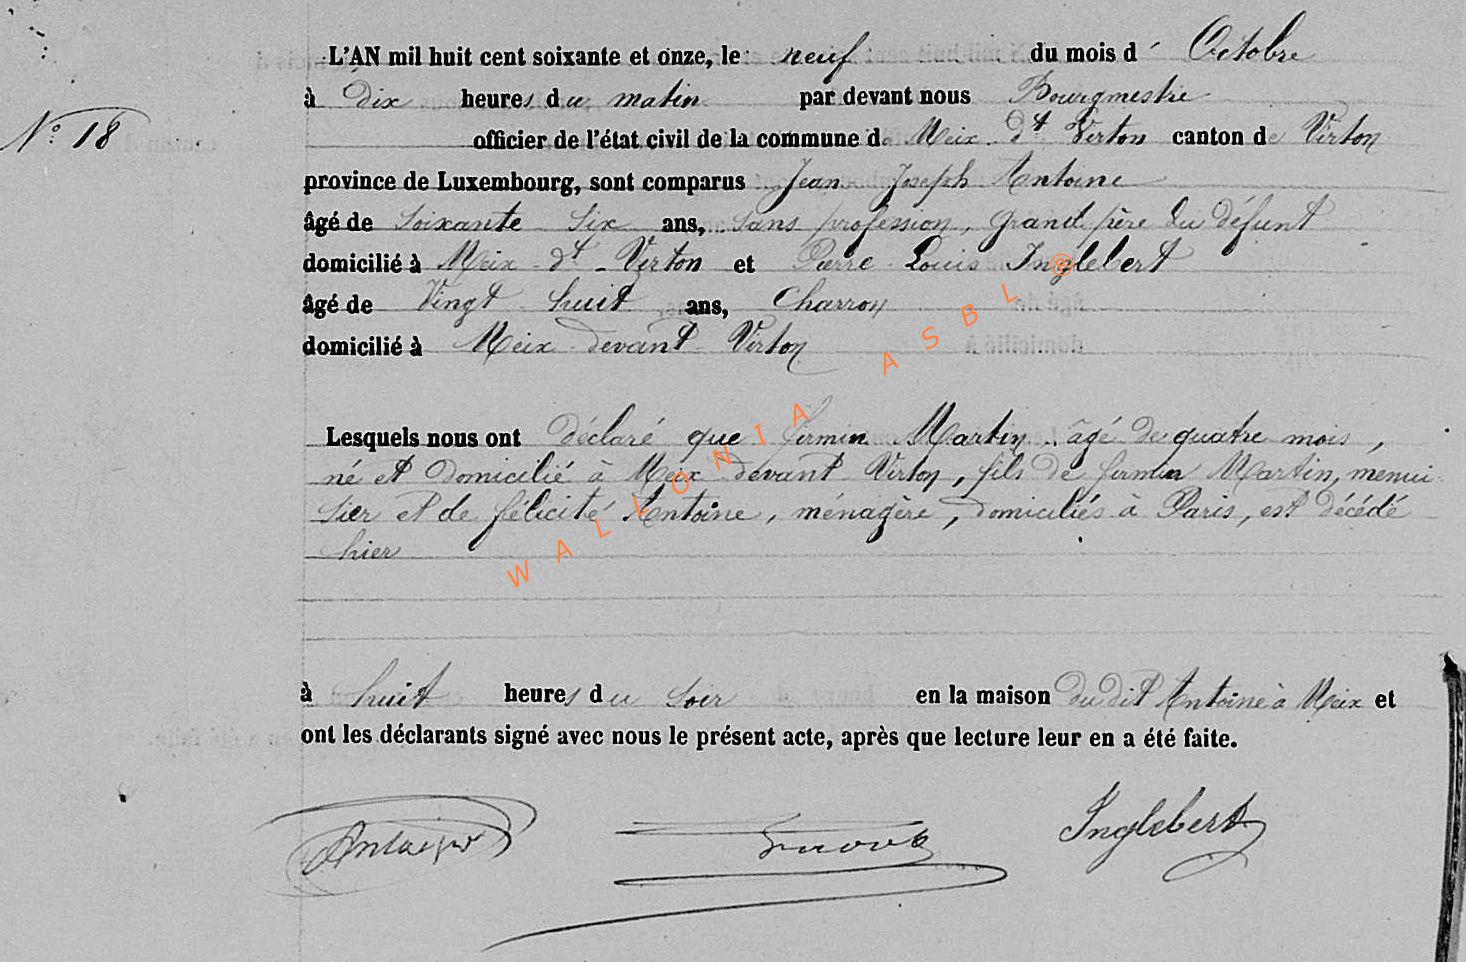 L'AN mil huit cent soixante et onze, le neuf du mois d' Octobre
à Dix heures du matin par devant nous Bourgmestre
N° 18
officier de l'état civil de la commune de Meix-dt Virton canton de Virton
province de Luxembourg, sont comparus Jean Joseph Antoine
âgé de soixante six ans, sans profession, grand père du défunt
domicilié à Meix-dt-Virton et Pierre Louis Inglebert
âgé de Vingt huit ans, Charron
domicilié à Meix-devant-Virton
Lesquels nous ont déclaré que firmin Martin âgé de quatre mois,
né et domicilié à Meix devant Virton, fils de firmin Martin, menui-
sier et de félicité Antoine, ménagère, domiciliés à Paris, est décédé
hier
à huit heures du soir en la maison du dit Antoine à Meix et
ont les déclarants signé avec nous le présent acte, après que lecture leur en a été faite.
Inglebert
WALLONIA ASBL ®